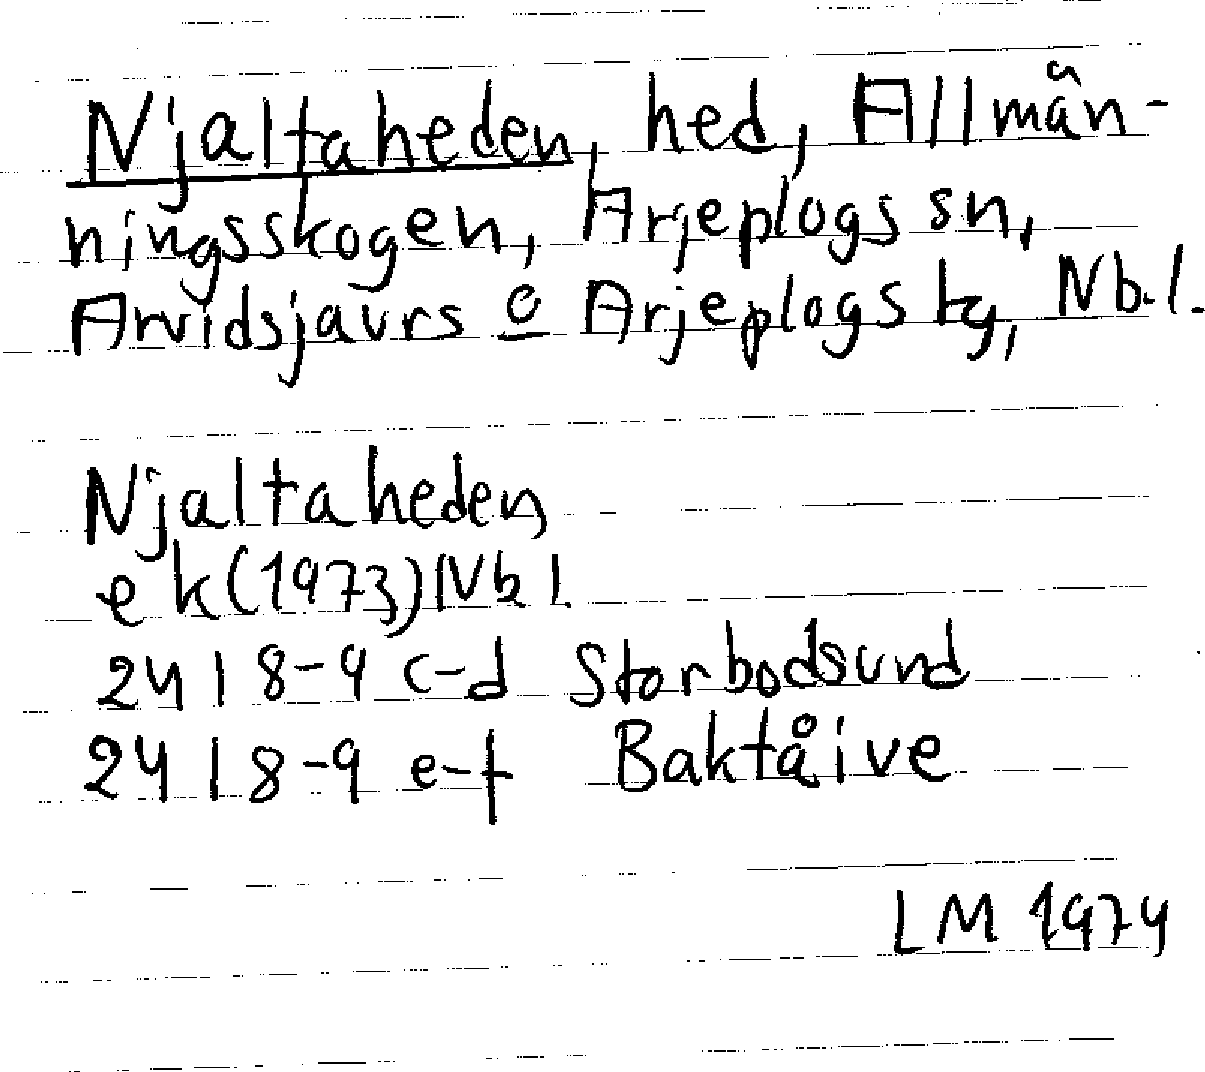 Njaltaheden, hed, Allmän-
ningsskogen, Arjeplogs sn,
Arvidsjaurs o Arjeplogs ty, Nb.l.
Njaltaheden
ek (1973) Nb l.
24 I 8-9 c-d Storbodsund
24 I 8-9 e-f Baktåive
LM 1974